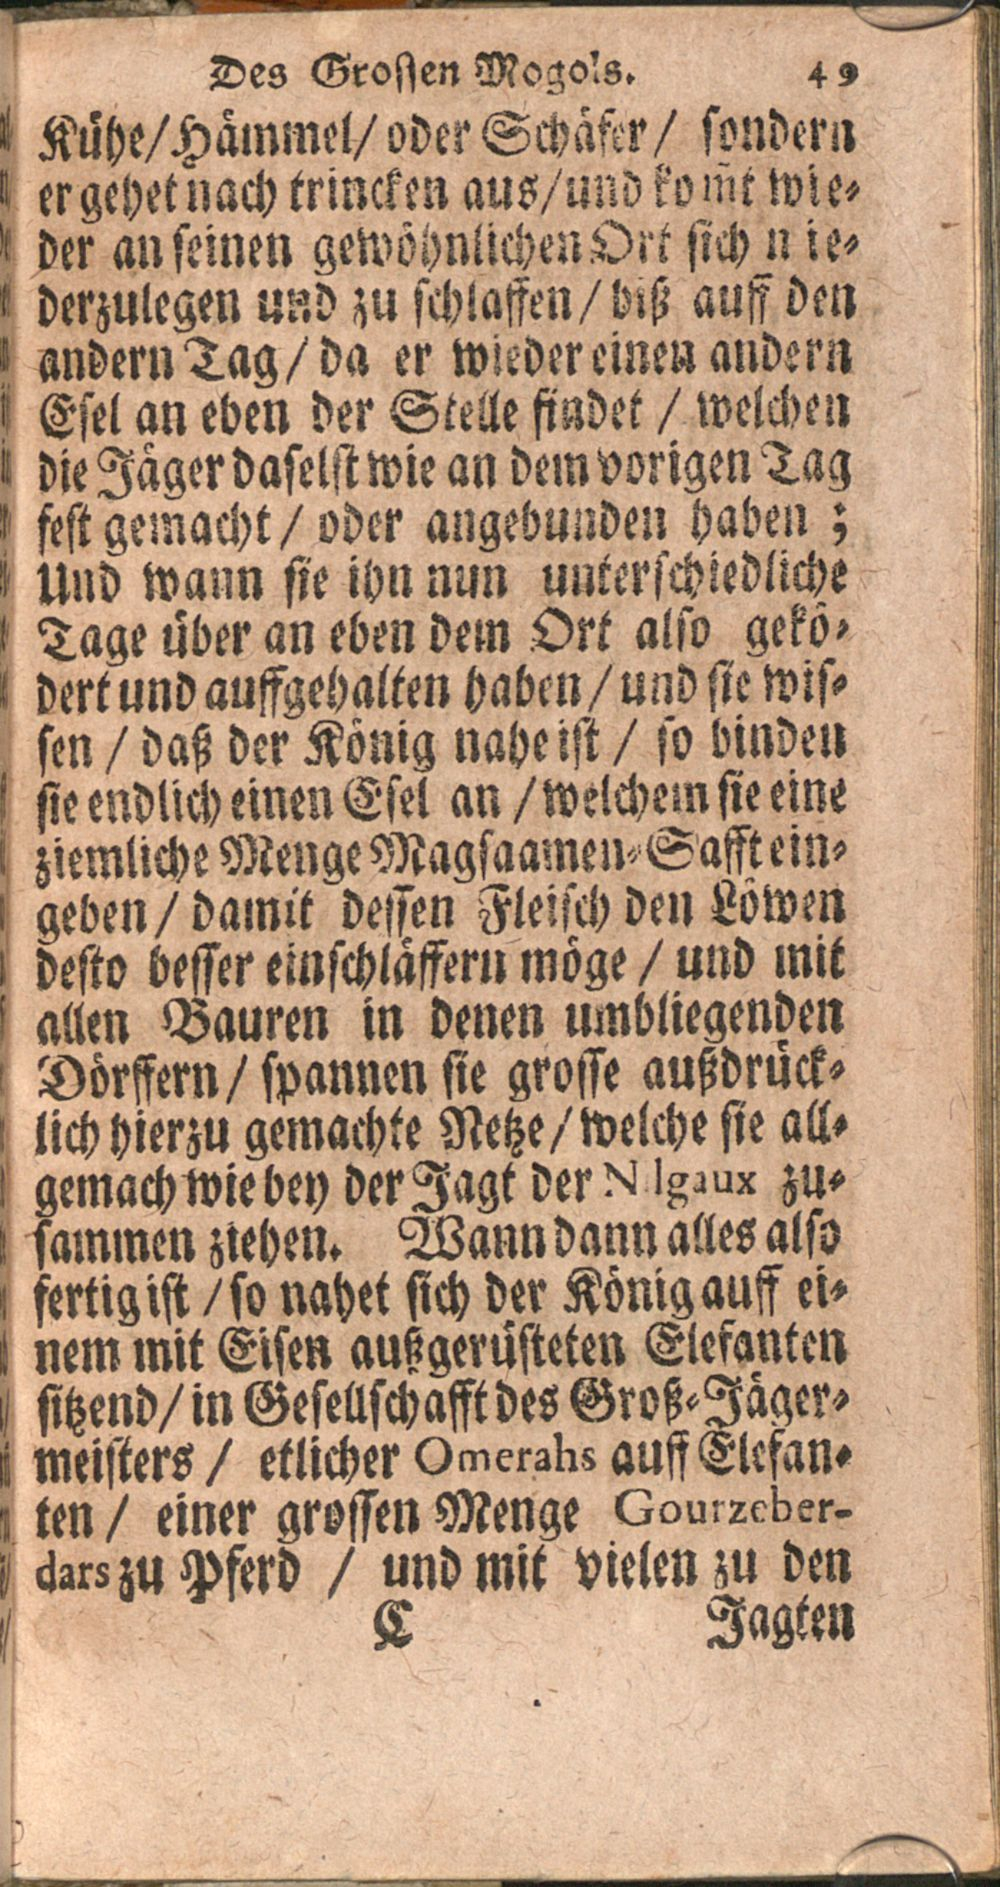 Des Grossen Mogols. 49
Kühe/ Hämmel/ oder Schäfer/ sondern
er gehet nach trincken aus/ und kom̃t wie-
der an seinen gewöhnlichen Ort sich nie-
derzulegen und zu schlaffen / biß auff den
andern Tag / da er wieder einen andern
Esel an eben der Stelle findet / welchen
die Jäger daselst wie an dem vorigen Tag
fest gemacht / oder angebunden haben ;
Und wann sie ihn nun unterschiedliche
Tage über an eben dem Ort also gekö-
dert und auffgehalten haben / und sie wis-
sen / daß der König nahe ist / so binden
sie endlich einen Esel an / welchem sie eine
ziemliche Menge Magsaamen-Safft ein-
geben / damit dessen Fleisch den Löwen
desto besser einschläffern möge / und mit
allen Bauren in denen umbliegenden
Dörffern / spannen sie grosse außdrück-
lich hierzu gemachte Netze / welche sie all-
gemach wie bey der Jagt der Nilgaux zu-
sammen ziehen. Wann dann alles also
fertig ist / so nahet sich der König auff ei-
nem mit Eisen außgerüsteten Elefanten
sitzend / in Gesellschafft des Groß-Jäger-
meisters / etlicher Omerahs auff Elefan-
ten / einer grossen Menge Gourzeber-
dars zu Pferd / und mit vielen zu den
C Jagten